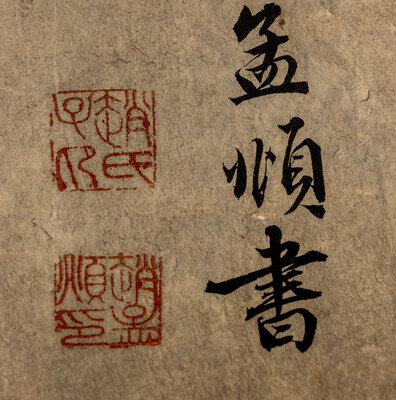 孟頫書
趙氏
子昂
趙孟
頫印